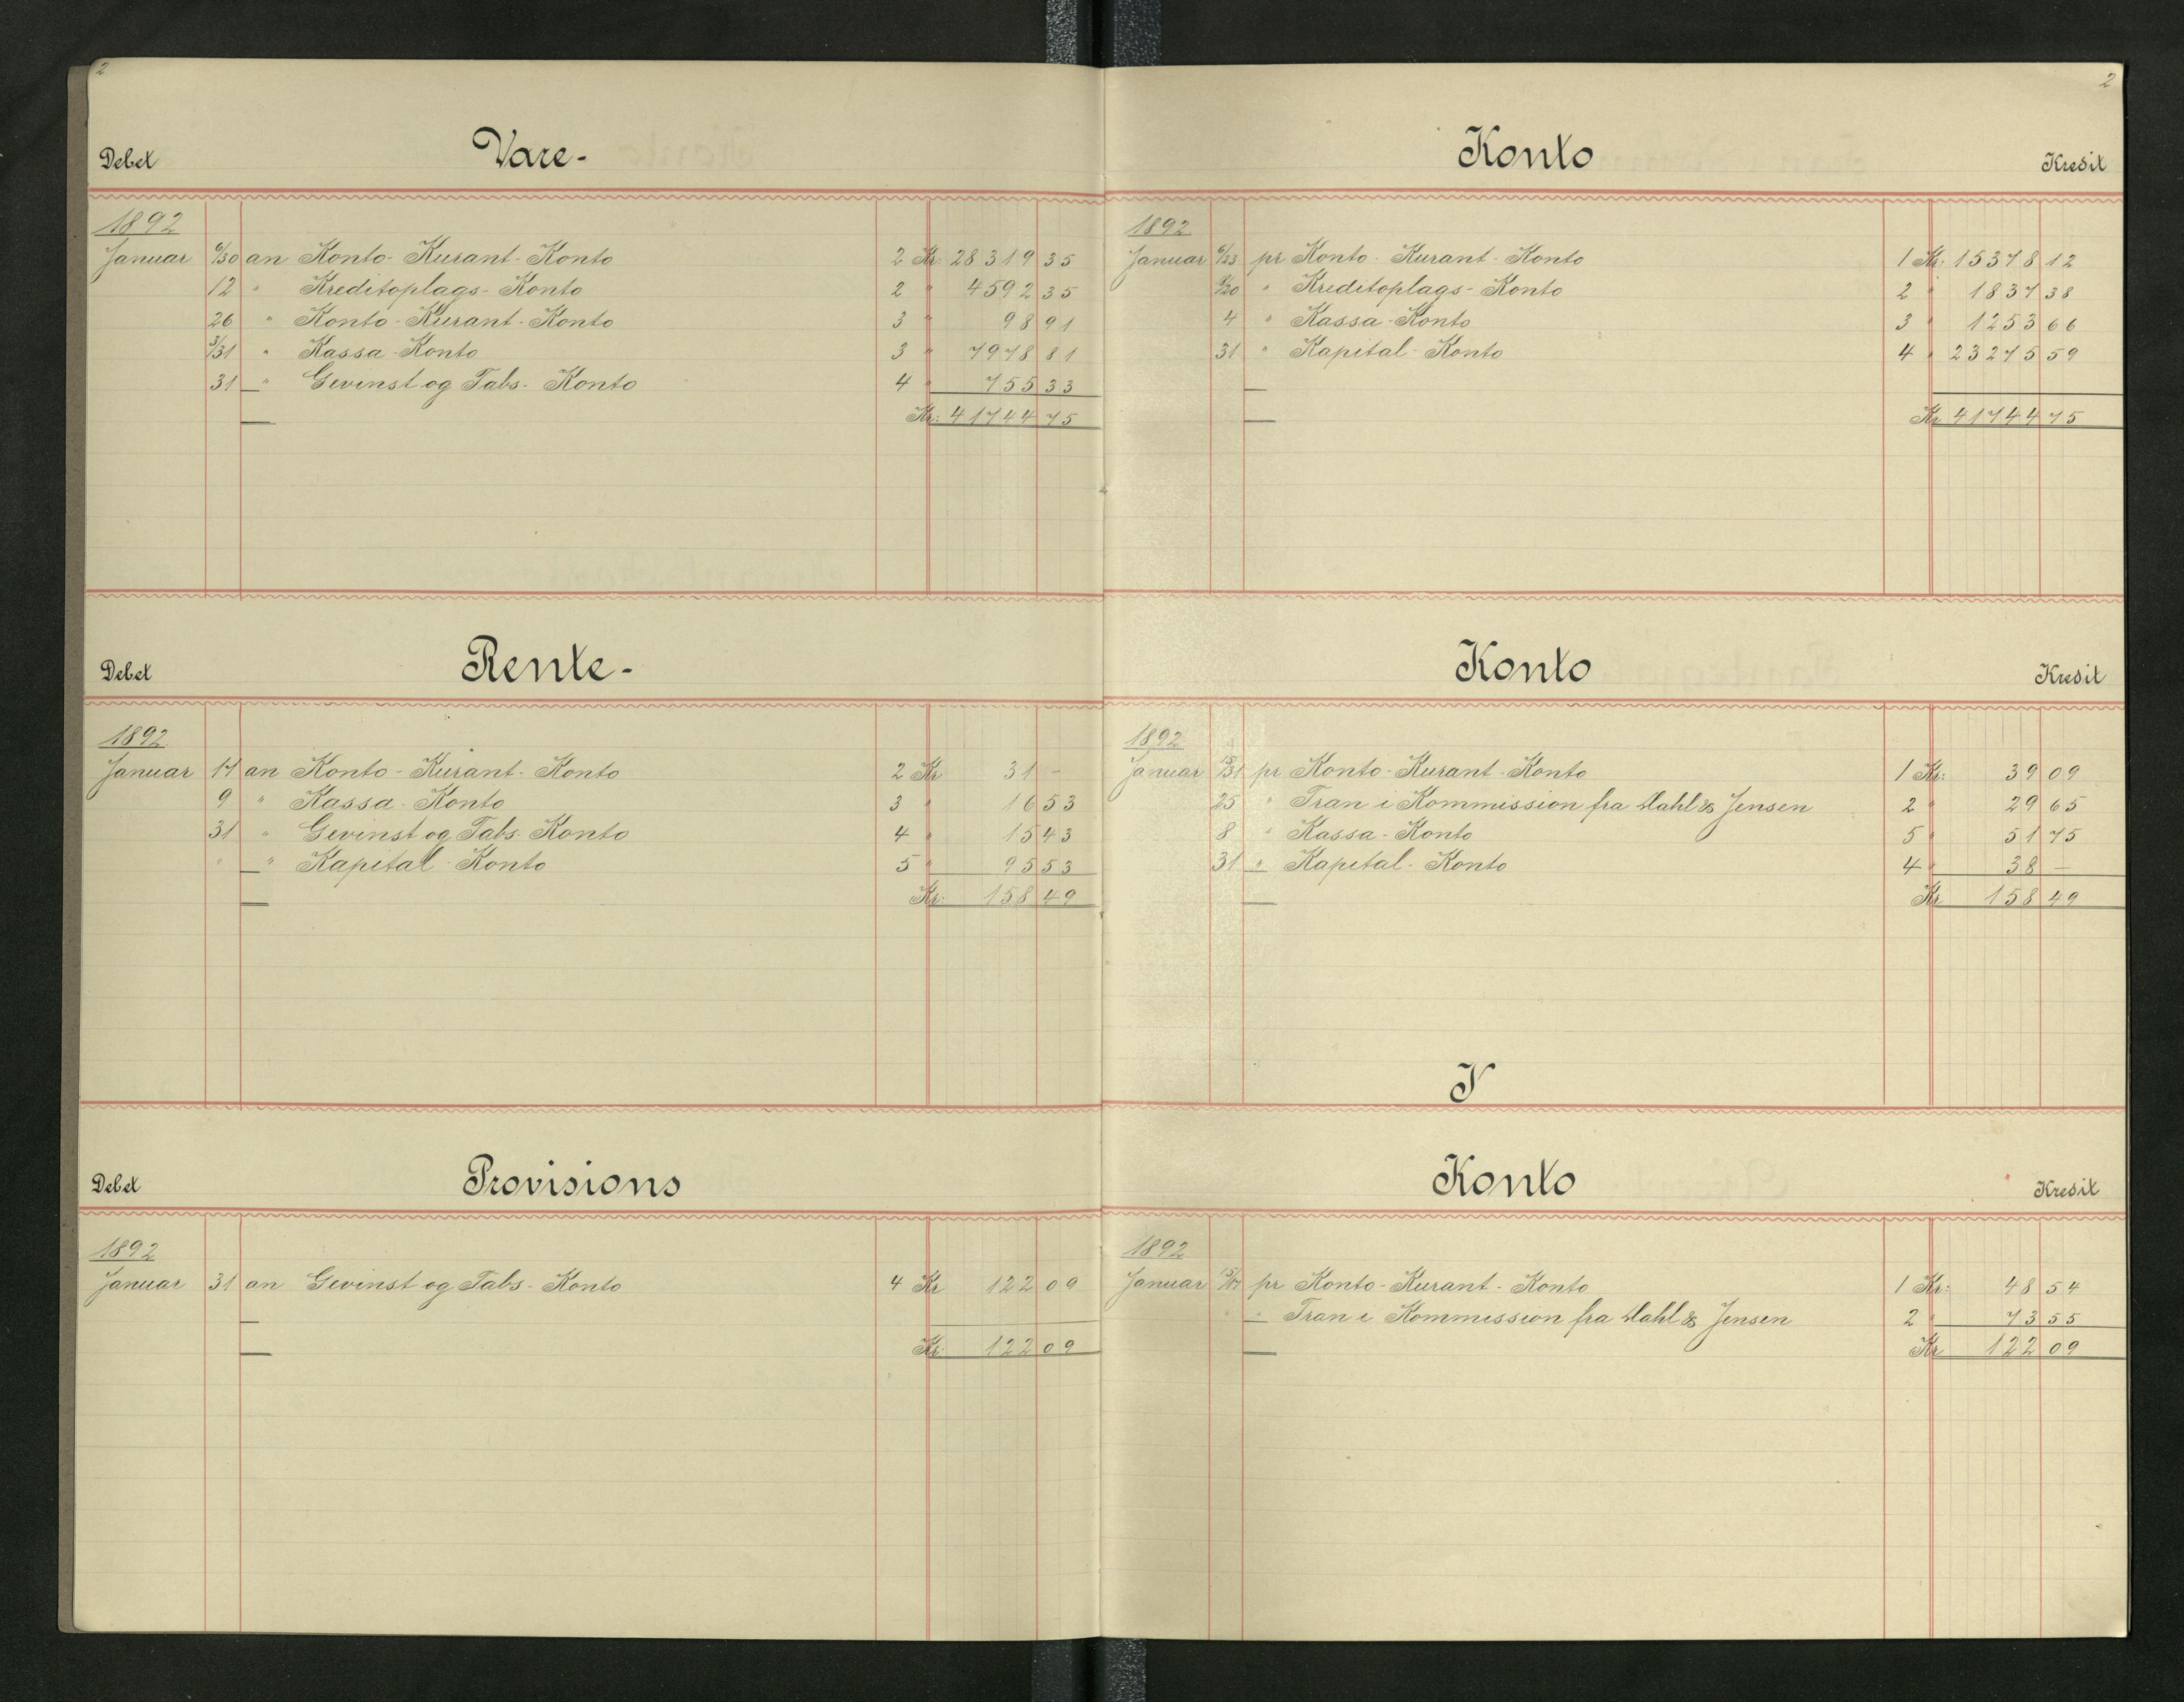 2
Debet Vare-
1892
Januar 6/30 an Konto-Kurant-Konto 2 Kr: 28319 35
12 " Kreditoplags-Konto 2 " 4592 35
26 " Konto-Kurant-Konto 3 " 98 91
3/31 " Kassa-Konto 3 " 7978 81
31 " Gevinst og Tabs-Konto 4 " 755 33
Kr: 41744 75
Debet Rente-
1892
Januar 17 an Konto-Kurant-Konto 2 Kr 31 -
9 " Kassa-Konto 3 " 16 53
31 " Gevinst og Tabs-Konto 4 " 15 43
" " Kapital-Konto 5 " 95 53
Kr: 158 49
Debet Provisions
1892
Januar 31 an Gevinst og Tabs-Konto 4 Kr 122 09
Kr 122 09
2
Konto Kredit
1892
Januar 6/23 pr Konto-Kurant-Konto 1 Kr: 15378 12
9/20 " Kreditoplags-Konto 2 " 1837 38
4 " Kassa-Konto 3 " 1253 66
31 " Kapital-Konto 4 " 23275 59
Kr 41744 75
Konto Kredit
1892
Januar 15/31 pr Konto-Kurant-Konto 1 Kr: 39 09
25 " Tran i Kommission fra Dahl & Jensen 2 " 29 65
8 " Kassa-Konto 5 " 51 75
31 " Kapital-Konto 4 " 38 -
Kr 158 49
Konto Kredit
1892
Januar 15/17 pr Konto-Kurant-Konto 1 Kr: 48 54
" " Tran i Kommission fra Dahl & Jensen 2 " 73 55
Kr 122 09